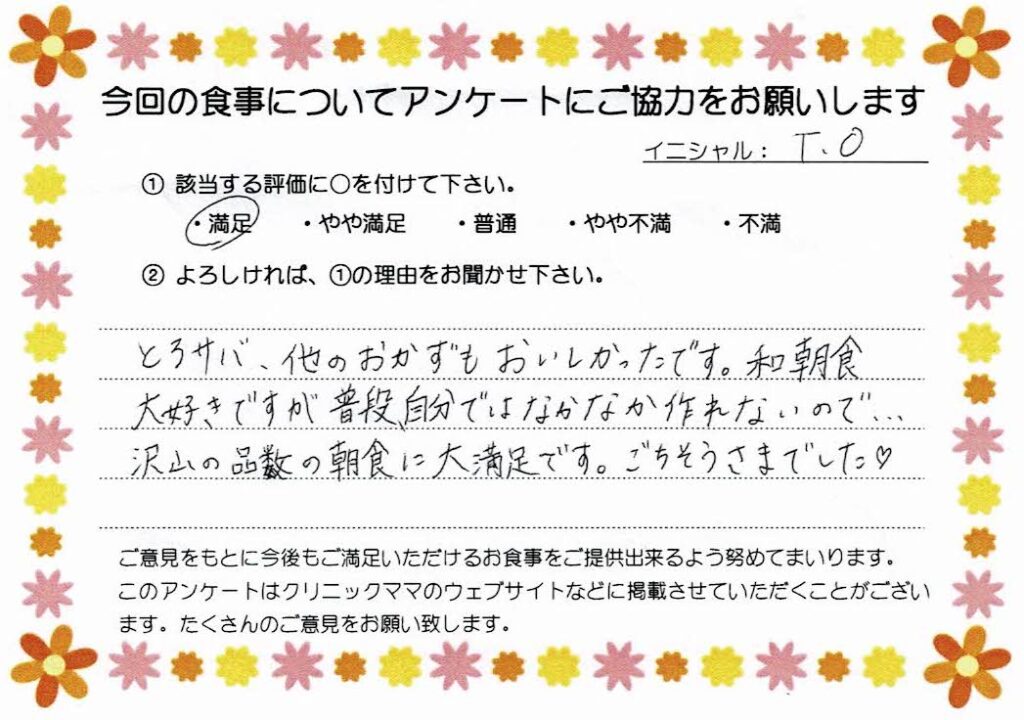 今回の食事についてアンケートにご協力をお願いします
イニシャル： T.O
① 該当する評価に○を付けて下さい。
・満足 ・やや満足 ・普通 ・やや不満 ・不満
② よろしければ、①の理由をお聞かせ下さい。
とろサバ、他のおかずもおいしかったです。和朝食
大好きですが普段、自分ではなかなか作れないので…
沢山の品数の朝食に大満足です。ごちそうさまでした♡
ご意見をもとに今後もご満足いただけるお食事をご提供出来るよう努めてまいります。
このアンケートはクリニックママのウェブサイトなどに掲載させていただくことがござい
ます。たくさんのご意見をお願い致します。